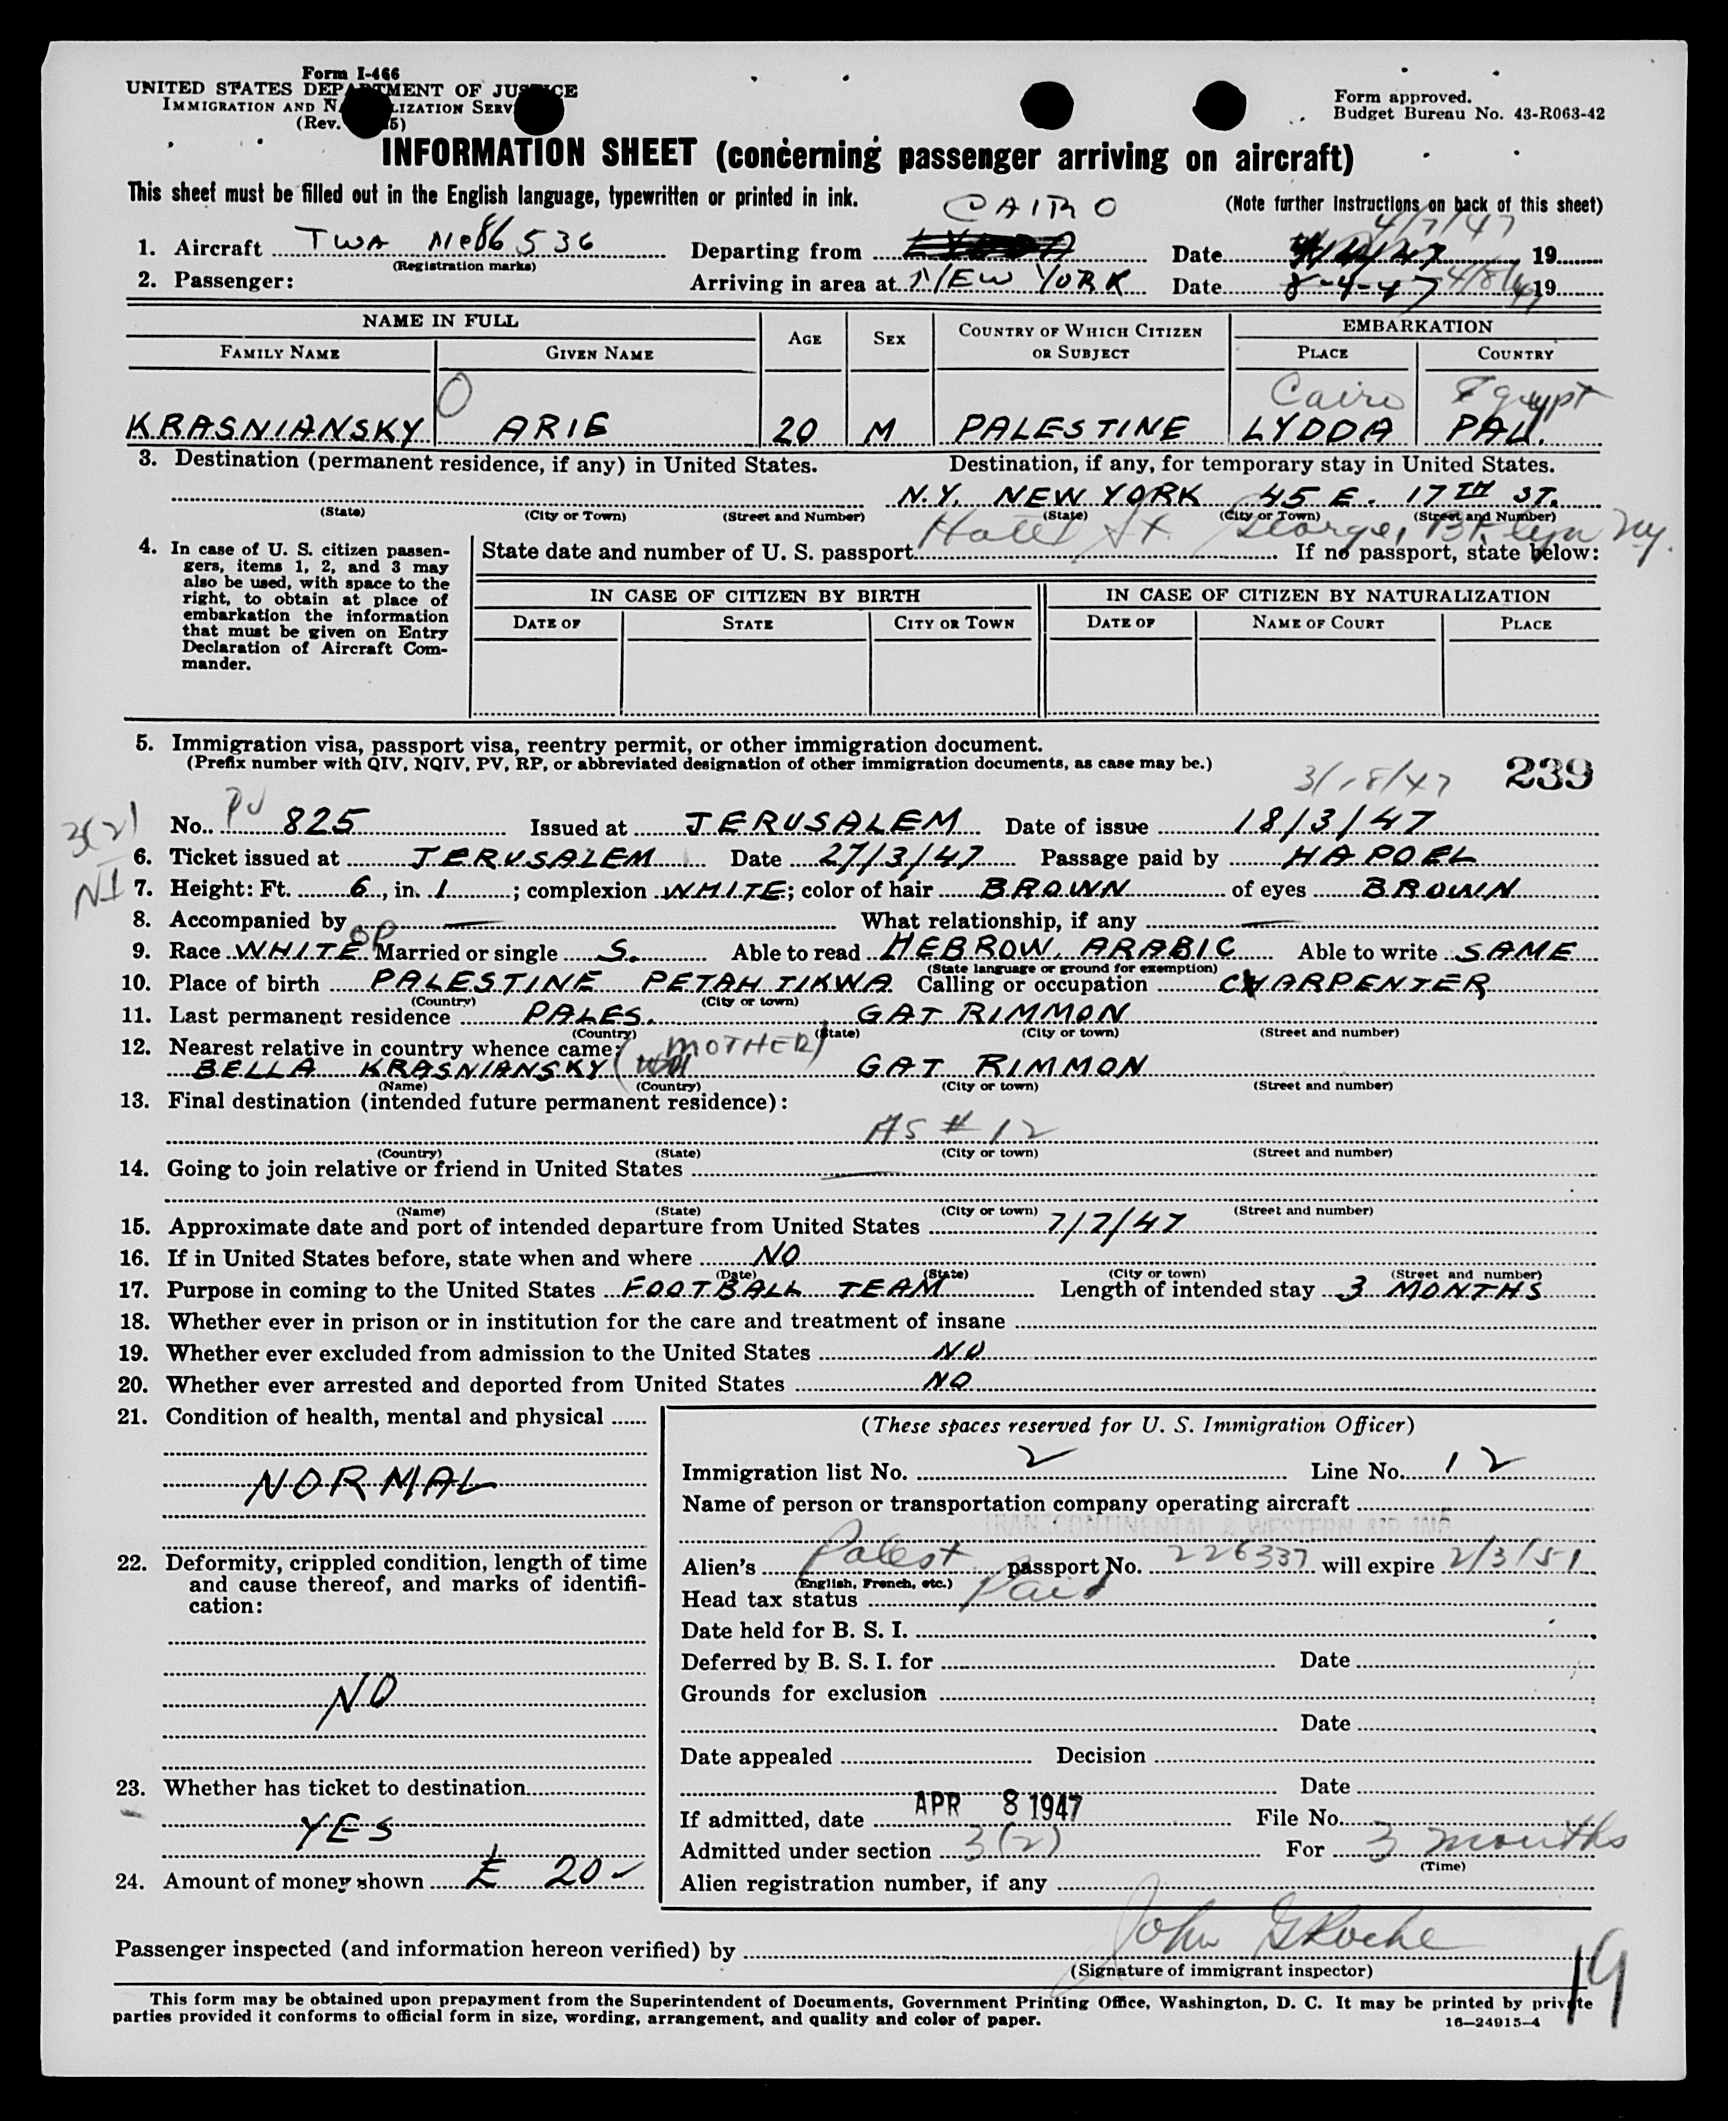 Form I-466
UNITED STATES DEPARTMENT OF JUSTICE
IMMIGRATION AND NATURALIZATION SERV
(Rev. 5)
Form approved.
Budget Bureau No. 43-R063-42
INFORMATION SHEET (concerning passenger arriving on aircraft)
This sheet must be filled out in the English language, typewritten or printed in ink.
(Note further instructions on back of this sheet)
CAIRO 4/7/47
1. Aircraft TWA Nc86536 Departing from Date 19
(Registration marks)
2. Passenger: Arriving in area at NEW YORK Date 8-4-47 4/8/47 19
NAME IN FULL AGE SEX COUNTRY OF WHICH CITIZEN OR SUBJECT EMBARKATION
FAMILY NAME GIVEN NAME PLACE COUNTRY
Cairo Egypt
KRASNIANSKY ARIE 20 M PALESTINE LYDDA PAL.
3. Destination (permanent residence, if any) in United States. Destination, if any, for temporary stay in United States.
N.Y. NEW YORK 45 E. 17TH ST.
(State) (City or Town) (Street and Number) (State) (City or Town) (Street and Number)
Hotel St. George, Bklyn NY.
4. In case of U. S. citizen passengers, items 1, 2, and 3 may also be used, with space to the right, to obtain at place of embarkation the information that must be given on Entry Declaration of Aircraft Commander.
State date and number of U. S. passport If no passport, state below:
IN CASE OF CITIZEN BY BIRTH IN CASE OF CITIZEN BY NATURALIZATION
DATE OF STATE CITY OR TOWN DATE OF NAME OF COURT PLACE
5. Immigration visa, passport visa, reentry permit, or other immigration document.
(Prefix number with QIV, NQIV, PV, RP, or abbreviated designation of other immigration documents, as case may be.)
239
3/18/47
3(2)
NI
No. PV 825 Issued at JERUSALEM Date of issue 18/3/47
6. Ticket issued at JERUSALEM Date 27/3/47 Passage paid by HAPOEL
7. Height: Ft. 6, in. 1; complexion WHITE; color of hair BROWN of eyes BROWN
8. Accompanied by — What relationship, if any —
OP
9. Race WHITE Married or single S. Able to read HEBROW, ARABIC Able to write SAME
(State language or ground for exemption)
10. Place of birth PALESTINE PETAH TIKWA Calling or occupation CARPENTER
(Country) (City or town)
11. Last permanent residence PALES. GAT RIMMON
(Country) (State) (City or town) (Street and number)
12. Nearest relative in country whence came:
BELLA KRASNIANSKY (MOTHER) GAT RIMMON
(Name) (Country) (City or town) (Street and number)
13. Final destination (intended future permanent residence):
AS # 12
(Country) (State) (City or town) (Street and number)
14. Going to join relative or friend in United States —
(Name) (State) (City or town) (Street and number)
15. Approximate date and port of intended departure from United States 7/7/47
16. If in United States before, state when and where NO
(Date) (State) (City or town) (Street and number)
17. Purpose in coming to the United States FOOTBALL TEAM Length of intended stay 3 MONTHS
18. Whether ever in prison or in institution for the care and treatment of insane
19. Whether ever excluded from admission to the United States NO
20. Whether ever arrested and deported from United States NO
21. Condition of health, mental and physical
NORMAL
22. Deformity, crippled condition, length of time and cause thereof, and marks of identification:
NO
23. Whether has ticket to destination
YES
24. Amount of money shown £ 20
(These spaces reserved for U. S. Immigration Officer)
Immigration list No. 2 Line No. 12
Name of person or transportation company operating aircraft
TRANSCONTINENTAL & WESTERN AIR INC
Alien's Palest passport No. 226337 will expire 2/3/51
(English, French, etc.)
Head tax status Paid
Date held for B. S. I.
Deferred by B. S. I. for Date
Grounds for exclusion
Date
Date appealed Decision
Date
If admitted, date APR 8 1947 File No.
Admitted under section 3(2) For 3 months
(Time)
Alien registration number, if any
Passenger inspected (and information hereon verified) by John G Roche
(Signature of immigrant inspector)
19
This form may be obtained upon prepayment from the Superintendent of Documents, Government Printing Office, Washington, D. C. It may be printed by private
parties provided it conforms to official form in size, wording, arrangement, and quality and color of paper.
16—24915-4